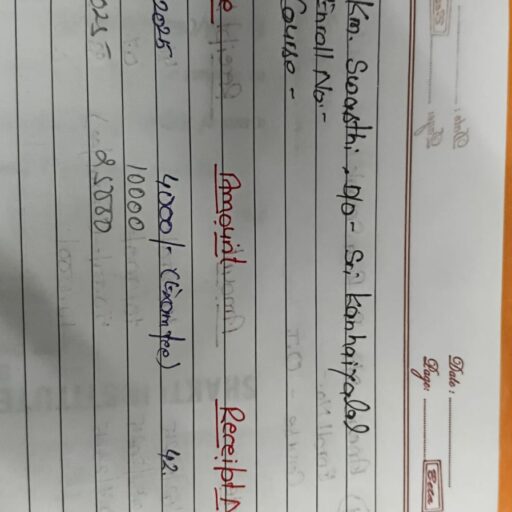 Date:
Page:
Km. Swasthi, D/o - Sri Kanhaiyalal
Enroll No:-
Course -
Amount Receipt
2025 4000/- (Exam fee) 42.
10000
2025 25000